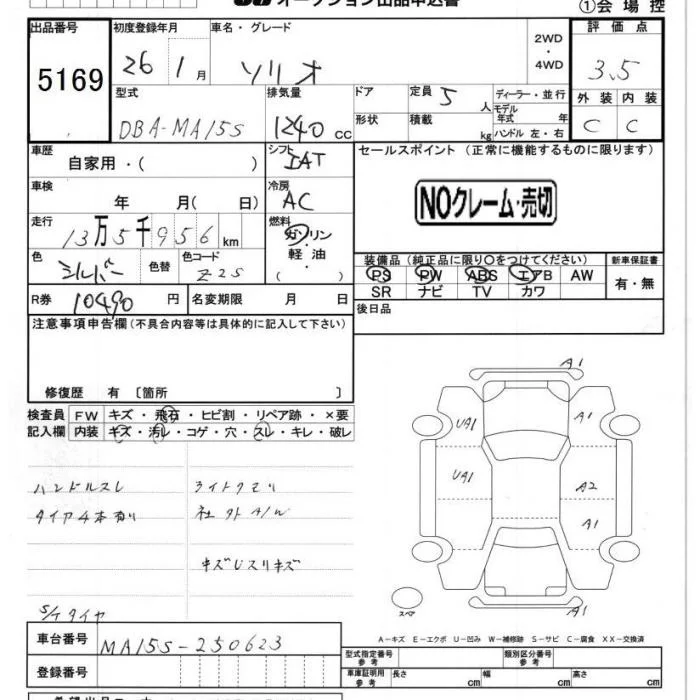 オークション出品申込書
①会場控
出品番号 初度登録年月 車名・グレード 2WD・4WD 評価点
5169 26 1月 ソリオ 3.5
型式 排気量 ドア 定員 5人 ディーラー・並行 外装 内装
DBA-MA15S 1240cc 形状 積載 kg モデル年式 年 ハンドル 左・右 C C
車歴 シフト セールスポイント(正常に機能するものに限ります)
自家用・( ) IAT
車検 冷房
年 月( 日) AC
NOクレーム・売切
走行 燃料
13万5千956km ガソリン・軽油・( )
色 色替 色コード 装備品(純正品に限り○をつけてください) 新車保証書
シルバー Z2S PS PW ABS エアB AW 有・無
SR ナビ TV カワ
R券 10490円 名変期限 月 日 後日品
注意事項申告欄(不具合内容等は具体的に記入して下さい)
修復歴 有〔箇所 〕
検査員 FW キズ・飛石・ヒビ割・リペア跡・×要
記入欄 内装 キズ・汚レ・コゲ・穴・スレ・キレ・破レ
ハンドルスレ ライトクモリ
タイヤ4本有り 社外A/W
キズUスリキズ
S/Tタイヤ
A1
UA1 A1
UA1 A2
A1
スペア A1
A-キズ E-エクボ U-凹み W-補修跡 S-サビ C-腐食 XX-交換済
車台番号 MA15S-250623
登録番号
型式指定番号 参考 類別区分番号 参考
車庫証明用 参考 長さ cm 幅 cm 高さ cm